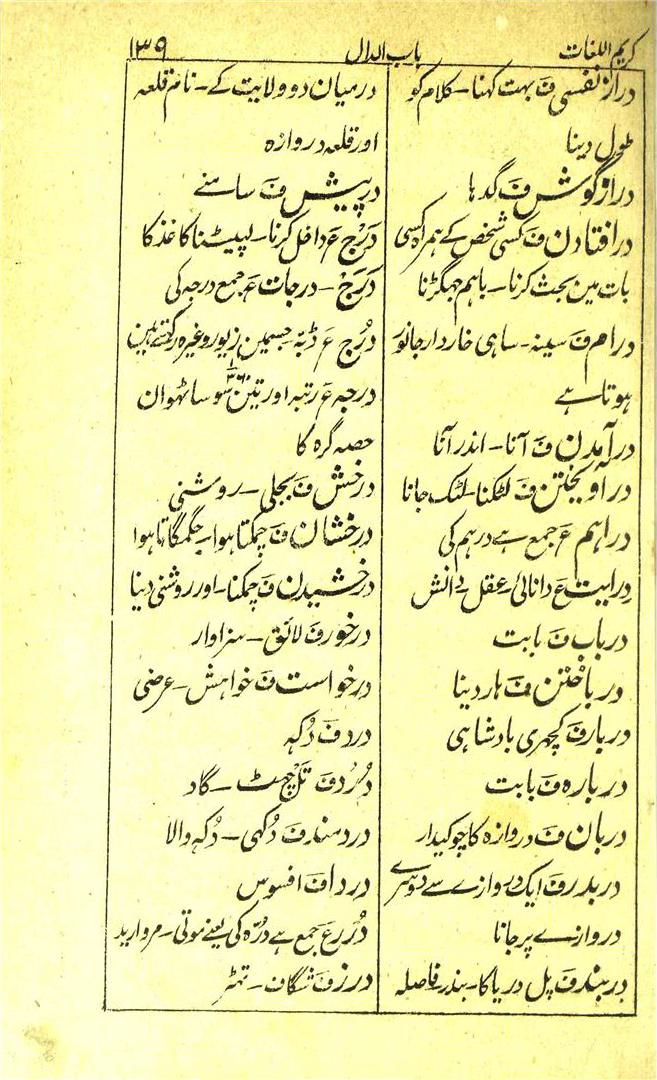 کریم اللغات باب الدال ۱۳۹
دراز نفسی ف بہت کہنا۔ کلام کو
طول دینا
دراز گوش ف گدہا
در افتادن ف کسی شخص کے ہمراہ کسی
بات مین بحث کرنا۔ باہم جھگڑنا
درام ف سینہ۔ ساہی خاردار جانور
ہوتا ہے
در آمدن ف آنا۔ اندر آنا
در آویختن ف لٹکنا۔ لٹک جانا
دراہم ع جمع ہے درہم کی
درایت ع دانائی۔ عقل دانش
درباب ف بابت
درباختن ف ہار دینا
دربار ف کچہری بادشاہی
دربارہ ف بابت
دربان ف دروازہ کا چوکیدار
دربدر ف ایک دروازے سے دوسرے
دروازے پر جانا
دربند ف پل دریا کا۔ بندر۔ فاصلہ
درمیان دو ولایت کے۔ نام قلعہ
اور قلعہ دروازہ
درپیش ف سامنے
دَرْج ع داخل کرنا۔ لپیٹنا کاغذ کا
دَرَج۔ درجات ع جمع درجہ کی
دُرج ع ڈبہ جسمین زیور وغیرہ رکھتے ہین
درجہ ع رتبہ اور تین سو ساٹھوان ۳۶۰
حصہ گرہ کا
درخش ف بجلی۔ روشنی
درخشان ف چمکتا ہوا۔ جگمگاتا ہوا
درخشیدن ف چمکنا۔ اور روشنی دینا
درخور ف لائق۔ سزاوار
درخواست ف خواہش۔ عرضی
درد ف دُکہہ
دُرد ف تلچھٹ۔ گاد
دردمند ف دُکہی۔ دُکہہ والا
دردا ف افسوس
دُرَر ع جمع ہے دُرّہ کی یعنے موتی۔ مروارید
درز ف شگاف۔